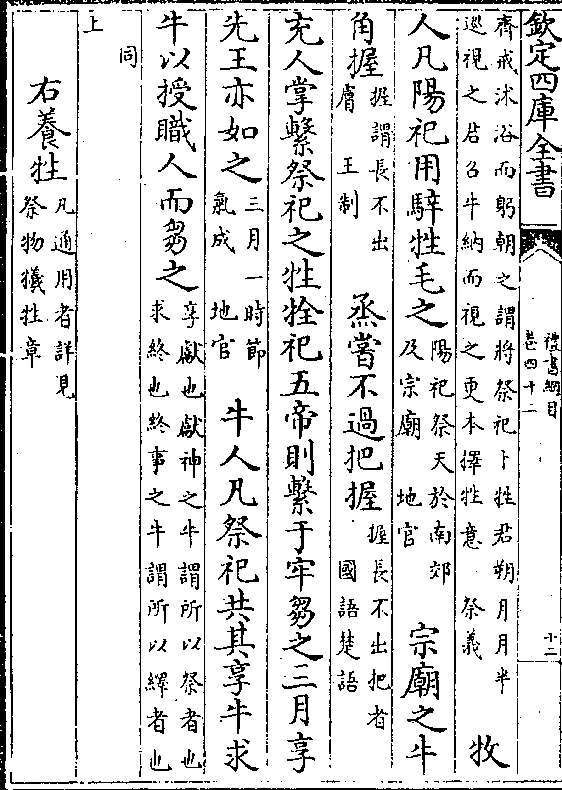 欽定四庫全書
禮書綱目
卷四十二
十二
齊戒沐浴而躬朝之謂將祭祀卜牲君朔月月半
巡視之君召牛納而視之更本擇牲意 祭義
牧
人凡陽祀用騂牲毛之
陽祀祭天於南郊
及宗廟 地官
宗廟之牛
角握
握謂長不出
膚 王制
烝嘗不過把握
握長不出把者
國語楚語
充人掌繫祭祀之牲牷祀五帝則繫于牢芻之三月享
先王亦如之
三月一時節
氣成 地官
牛人凡祭祀共其享牛求
牛以授職人而芻之
享獻也獻神之牛謂所以祭者也
求終也終事之牛謂所以繹者也
同
上
右養牲
凡通用者詳見
祭物犧牲章